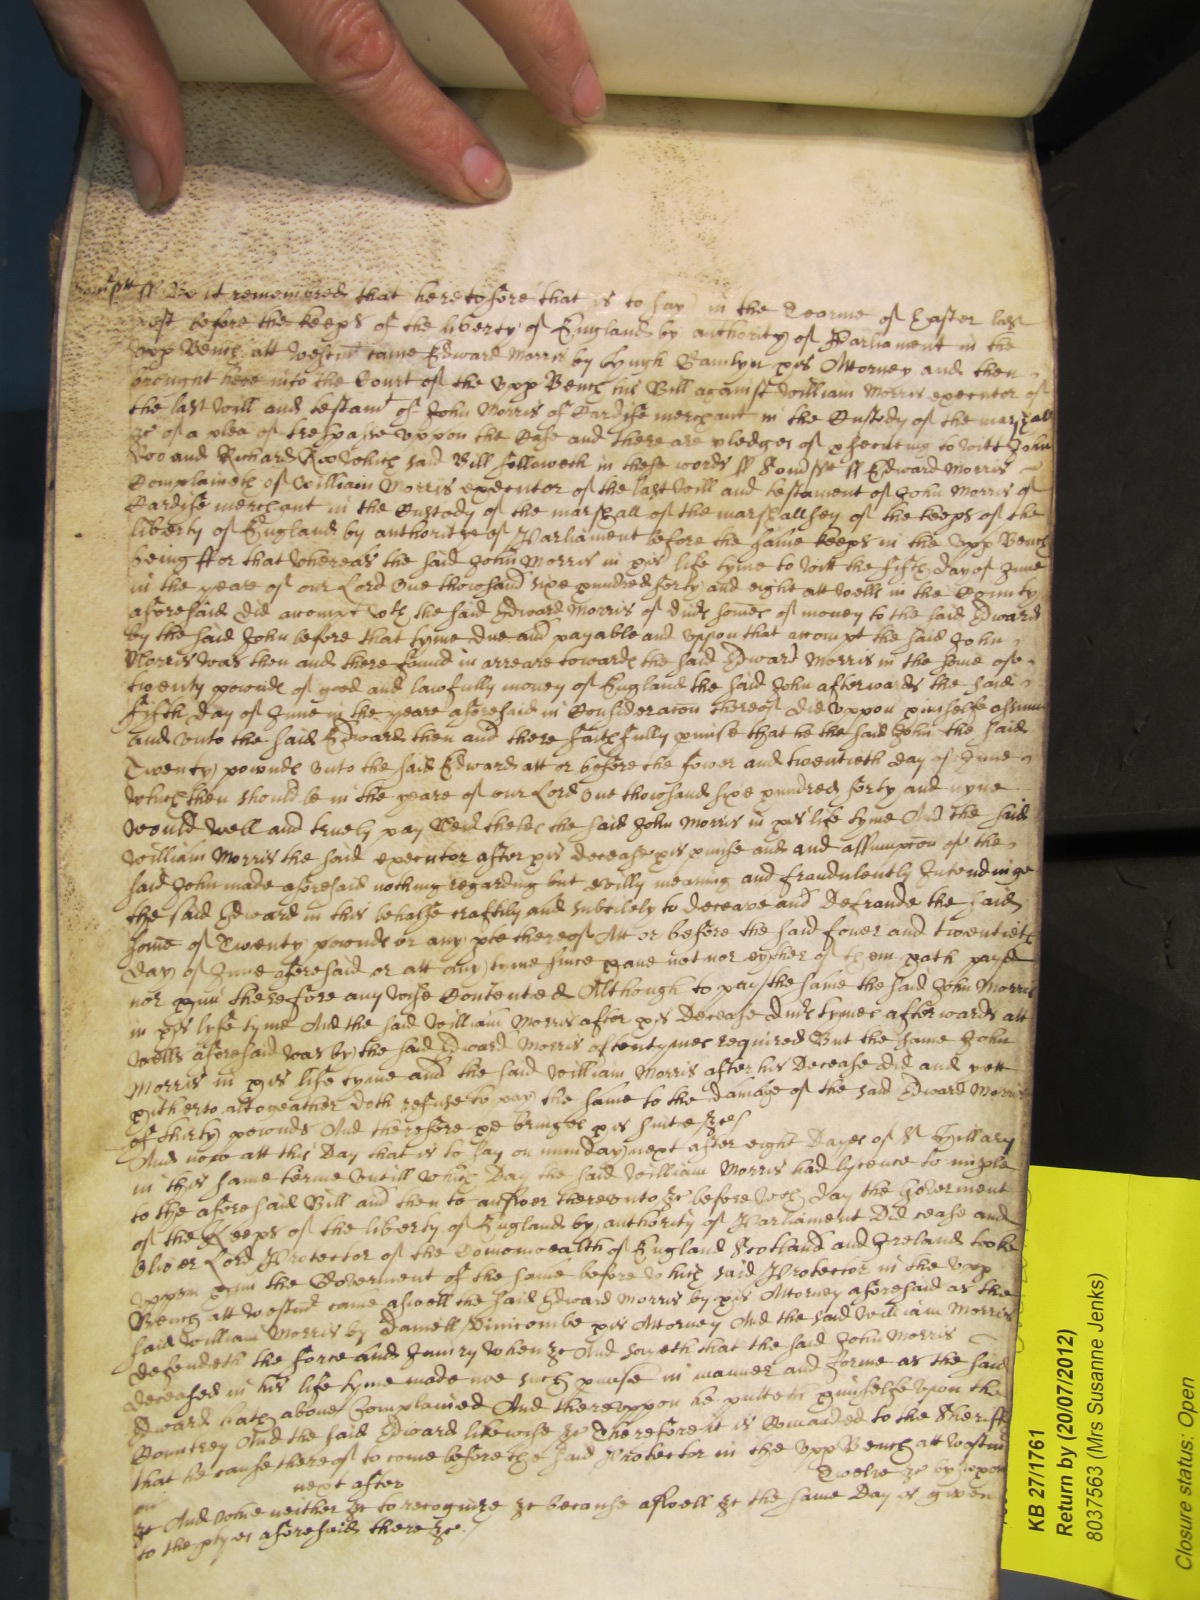 Som'stt ss Be it remembred that heretofore that is to say in the Tearme of Easter last
past before the keeps of the liberty of England by authority of Parliament in the
vpp Bench att westm' came Edward Morris by Hugh Hamlyn his Attorney and then
brought here into the Court of the vpp Bench his Bill against William Morris executor of
the last will and testamt of John Morris of Cardiffe merchant in the Custody of the marshall
&c of a plea of trespasse vppon the Case and there are pledges of psecuting to witt John
Doo and Richard Roo which said Bill followeth in these words ss Som'stt ss Edward Morris
Complaineth of William Morris executor of the last will and testament of John Morris of
Cardiffe merchant in the Custody of the marshall of the marshallsey of the keeps of the
liberty of England by authoritye of Parliament before the same keeps in the vpp Bench
being ffor that whereas the said John Morris in his life tyme to witt the fifth day of June
in the yeare of our Lord One thowsand sixe hundred forty and eight att wells in the County
aforesaid did accompt wth the said Edward Morris of divs somes of money to the said Edward
by the said John before that tyme due and payable and vppon that accompt the said John
Morris was then and there found in arreare towards the said Edward Morris in the some of
twenty pownds of good and lawfully money of England the said John afterwards the said
fifth day of June in the yeare aforesaid in Consideracon thereof did vppon himselfe assume
and vnto the said Edward then and there faithfully pmise that he the said John the said
Twenty pownds vnto the said Edward att or before the fower and twentieth day of June
which then should be in the yeare of our Lord One thowsand sixe hundred forty and nyne
would well and truely pay Neverthelesse the said John Morris in his life tyme And the said
William Morris the said executor after his decease his pmise and and assumption of the
said John made aforesaid nothing regarding but evilly meaning and fraudulently Intendinge
the said Edward in this behalfe craftily and subtilely to deceave and Defraude the said
some of Twenty pownds or any pte thereof Att or before the said fower and twentieth
day of June aforesaid or att any tyme since have not nor eyther of them hath payd
nor him therefore any wise Contented Although to pay the same the said John Morris
in his lyfe tyme And the said William Morris after his Decease divs tymes afterwards att
wells aforesaid was by the said Edward Morris oftentymes required But the same John
Morris in his life tyme and the said William Morris after his Decease did and yett
hitherto altogeather doth refuse to pay the same to the damage of the said Edward Morris
of thirty pownds And therefore he bringes his suite &c
And now att this Day that is to say on munday next after eight Dayes of St Hyllary
in this same terme vntill which Day the said William Morris had lycence to imple
to the aforesaid Bill and then to answer therevnto &c before wch day the Goverment
of the Keeps of the liberty of England by authority of Parliament Did cease and
Oliver Lord Protector of the Comonwealth of England Scotland and Ireland tooke
vppon him the Goverment of the same before which said Protector in the vpp
Bench att westm' came aswell the said Edward Morris by his Attorney aforesaid as the
said William Morris by Daniell Vinicombe his Attorney And the said William Morris
defendeth the force and Iniury when &c And sayeth that the said John Morris
deceased in his life tyme made noe such pmise in manner and forme as the said
Edward hath above Complained And therevppon he putteth himselfe vpon the
Countrey And the said Edward likewise &c Therefore it is Comanded to the Sheriff
that he cause thereof to come before the said Protector in the vpp Bench att westm'
on next after Twelve &c by whom
&c And whoe neither &c to recognize &c because aswell &c the same Day is given
to the ptyes aforesaid there &c
KB 27/1761
Return by (20/07/2012)
8037563 (Mrs Susanne Jenks)
Closure status: Open